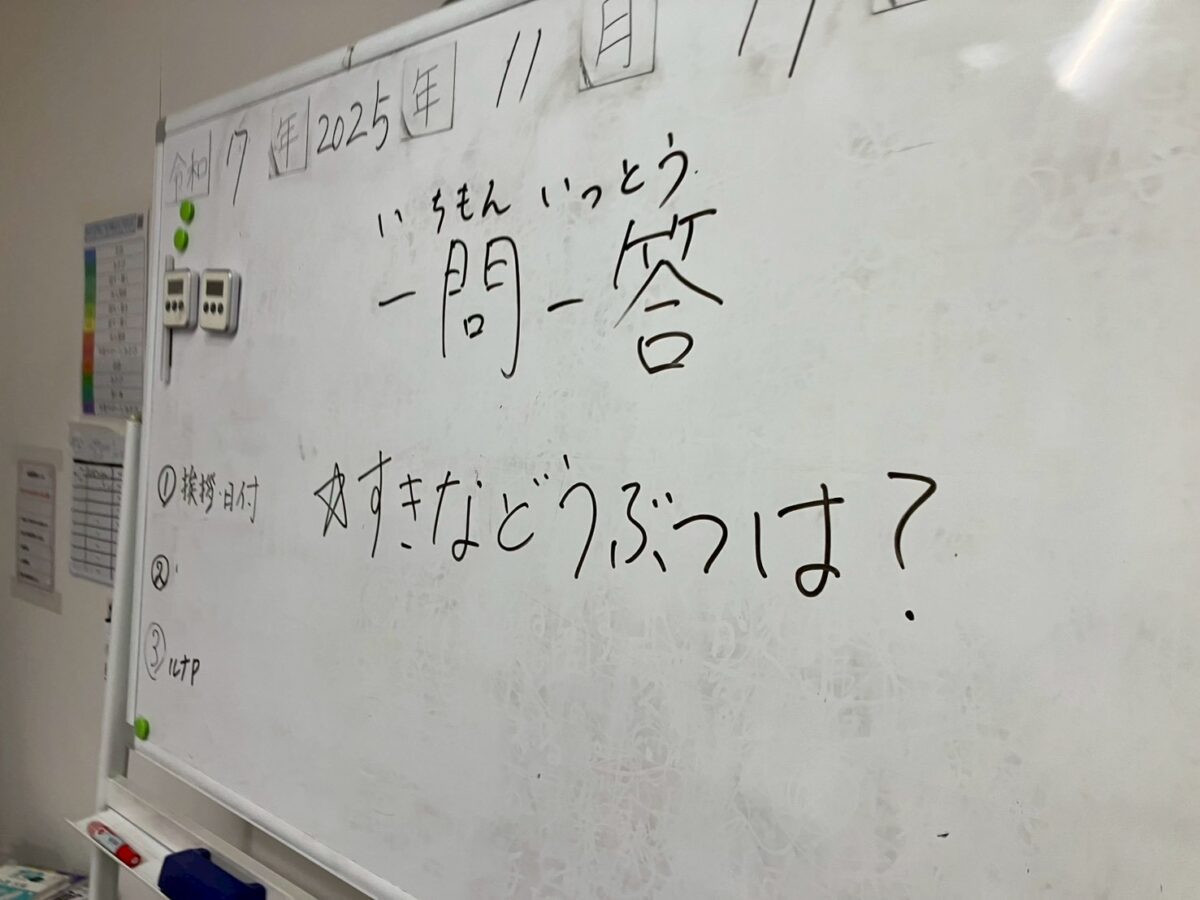 令和 7 年 2025 年 11 月 17
いちもん いっとう
一問一答
① 挨拶・日付
☆すきなどうぶつは?
②
③ ルナP